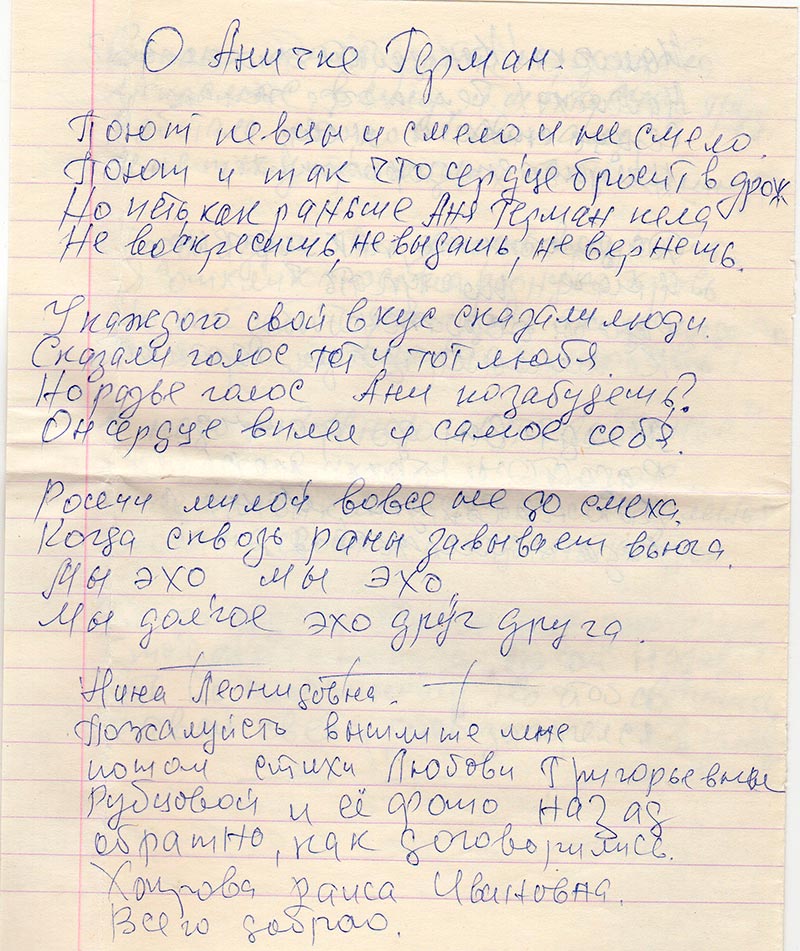 О Аничке Герман.
Поют певцы и смело и не смело.
Поют и так что сердце бросит в дрож
Но петь как раньше Аня Герман пела
Не воскресишь, не выдашь, не вернешь.
У каждого свой вкус сказали люди.
Сказали голос тот и тот любя.
Но разве голос Ани позабудешь?
Он сердце вплел и самое себя.
милой вовсе не до смеха.
Когда сквозь раны завывает вьюга.
Мы эхо мы эхо,
Мы долгое эхо друг друга.
Нина Леонидовна.
Пожалуйсть вышлите мне
потом стихи Любови Григорьевны
Рубцовой и её фото назад
обратно, как договорились.
раиса Ивановна.
Всего доброо.